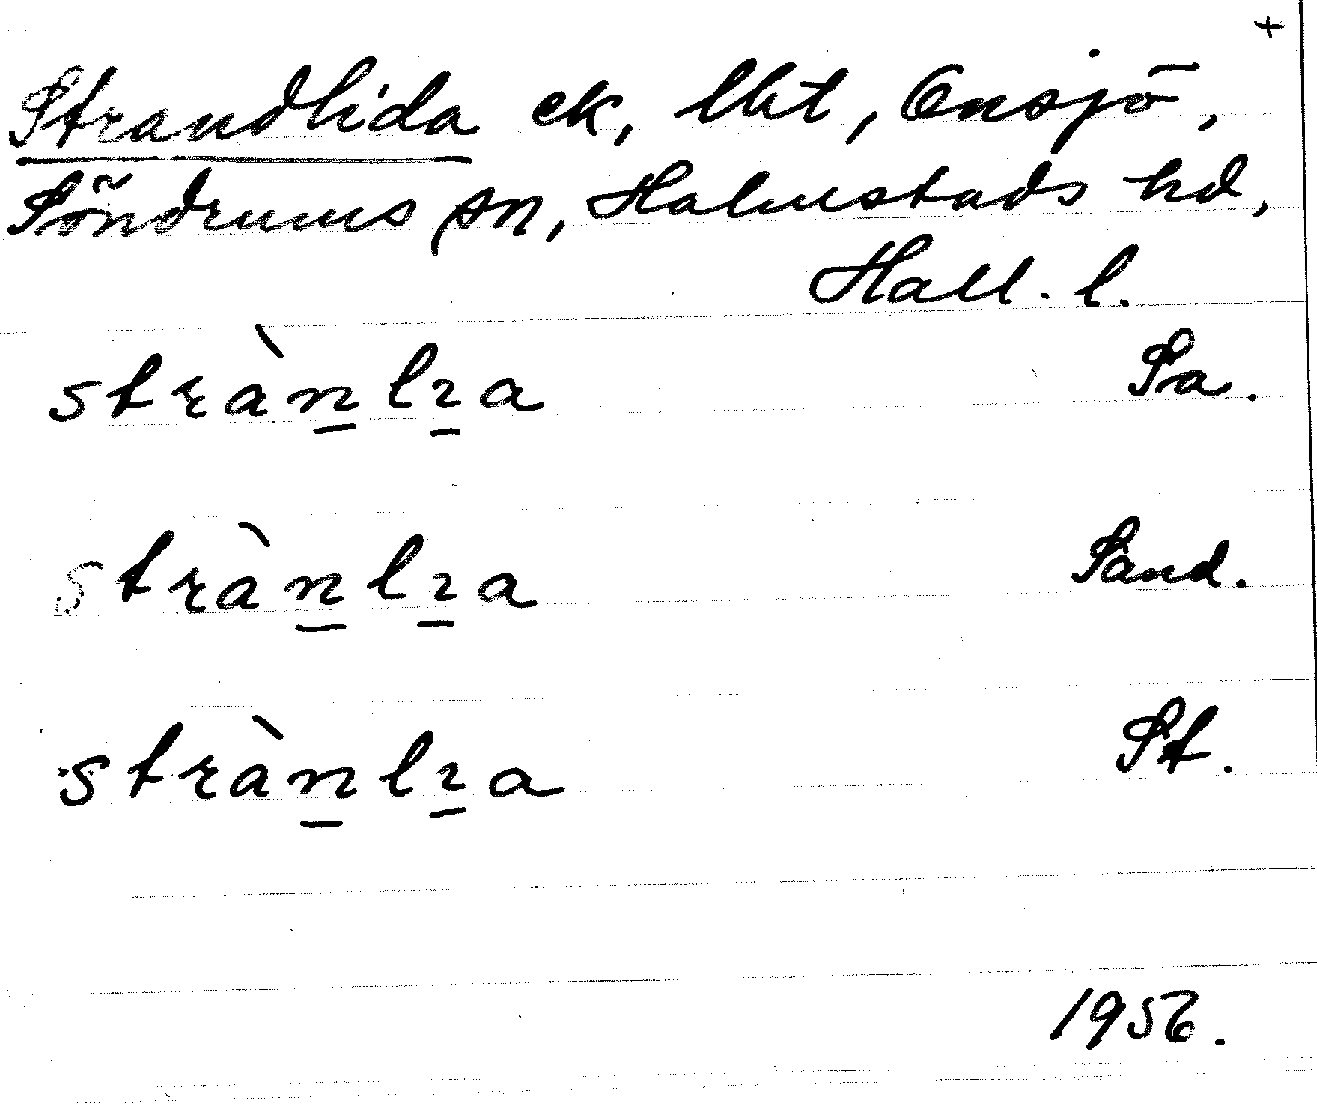 +
Strandlida ek, lht, Onsjö,
Söndrums sn, Halmstads hd,
Hall. l.
stràn̲lɪ̲a Sa.
stràn̲lɪ̲a Sand.
stràn̲lɪ̲a St.
1956.